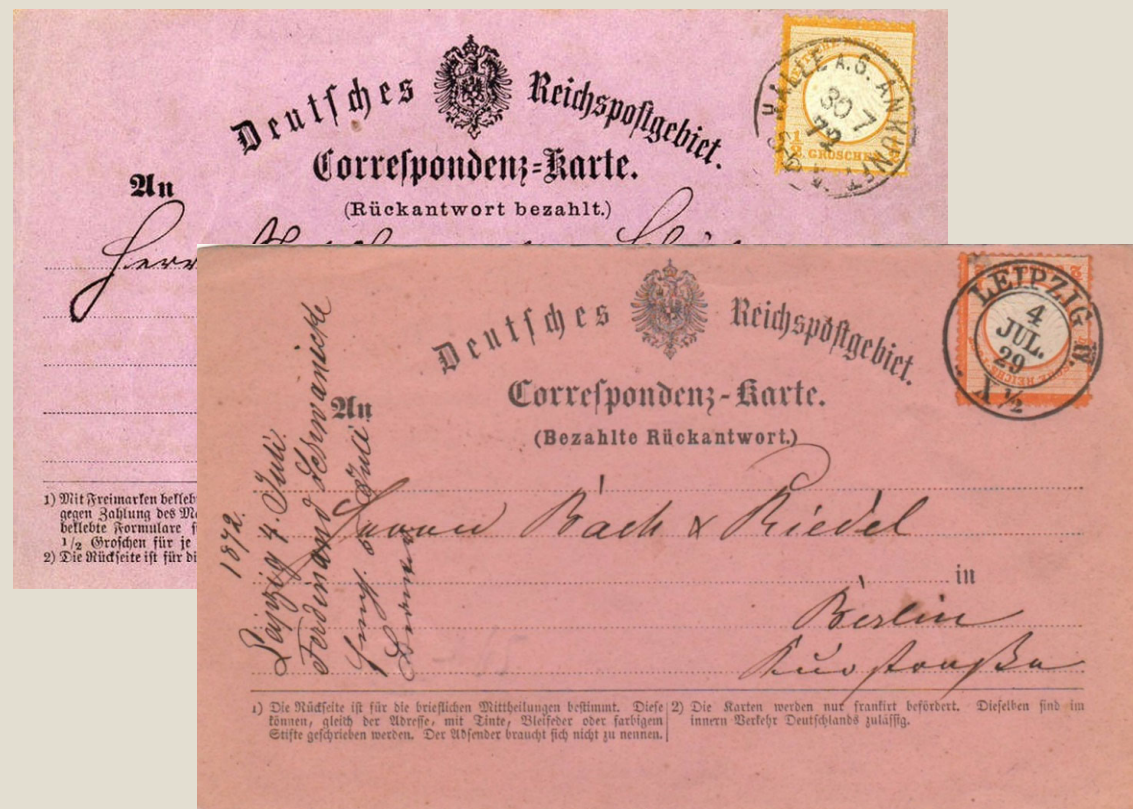 Deutſches Reichspoſtgebiet.
Correſpondenz-Karte.
(Rückantwort bezahlt.)
An
Herr
HALLE A.S. ANKUNFT
30 7
72
½
GROSCHEN
1) Mit Freimarken bekleb
gegen Zahlung des
beklebte Formulare
1/2 Groschen für je
2) Die Rückſeite iſt für di
Deutſches Reichspoſtgebiet.
Correſpondenz-Karte.
(Bezahlte Rückantwort.)
An
LEIPZIG IV.
4
JUL.
29
X ½
Bach & Riedel
in
Berlin
1872.
Leipzig 4. Juli
Ferdinand
1) Die Rückſeite iſt für die brieflichen Mittheilungen beſtimmt. Dieſe
können, gleich der Adreſſe, mit Tinte, Bleifeder oder farbigem
Stifte geſchrieben werden. Der Abſender braucht ſich nicht zu nennen.
2) Die Karten werden nur frankirt befördert. Dieſelben ſind im
innern Verkehr Deutſchlands zuläſſig.